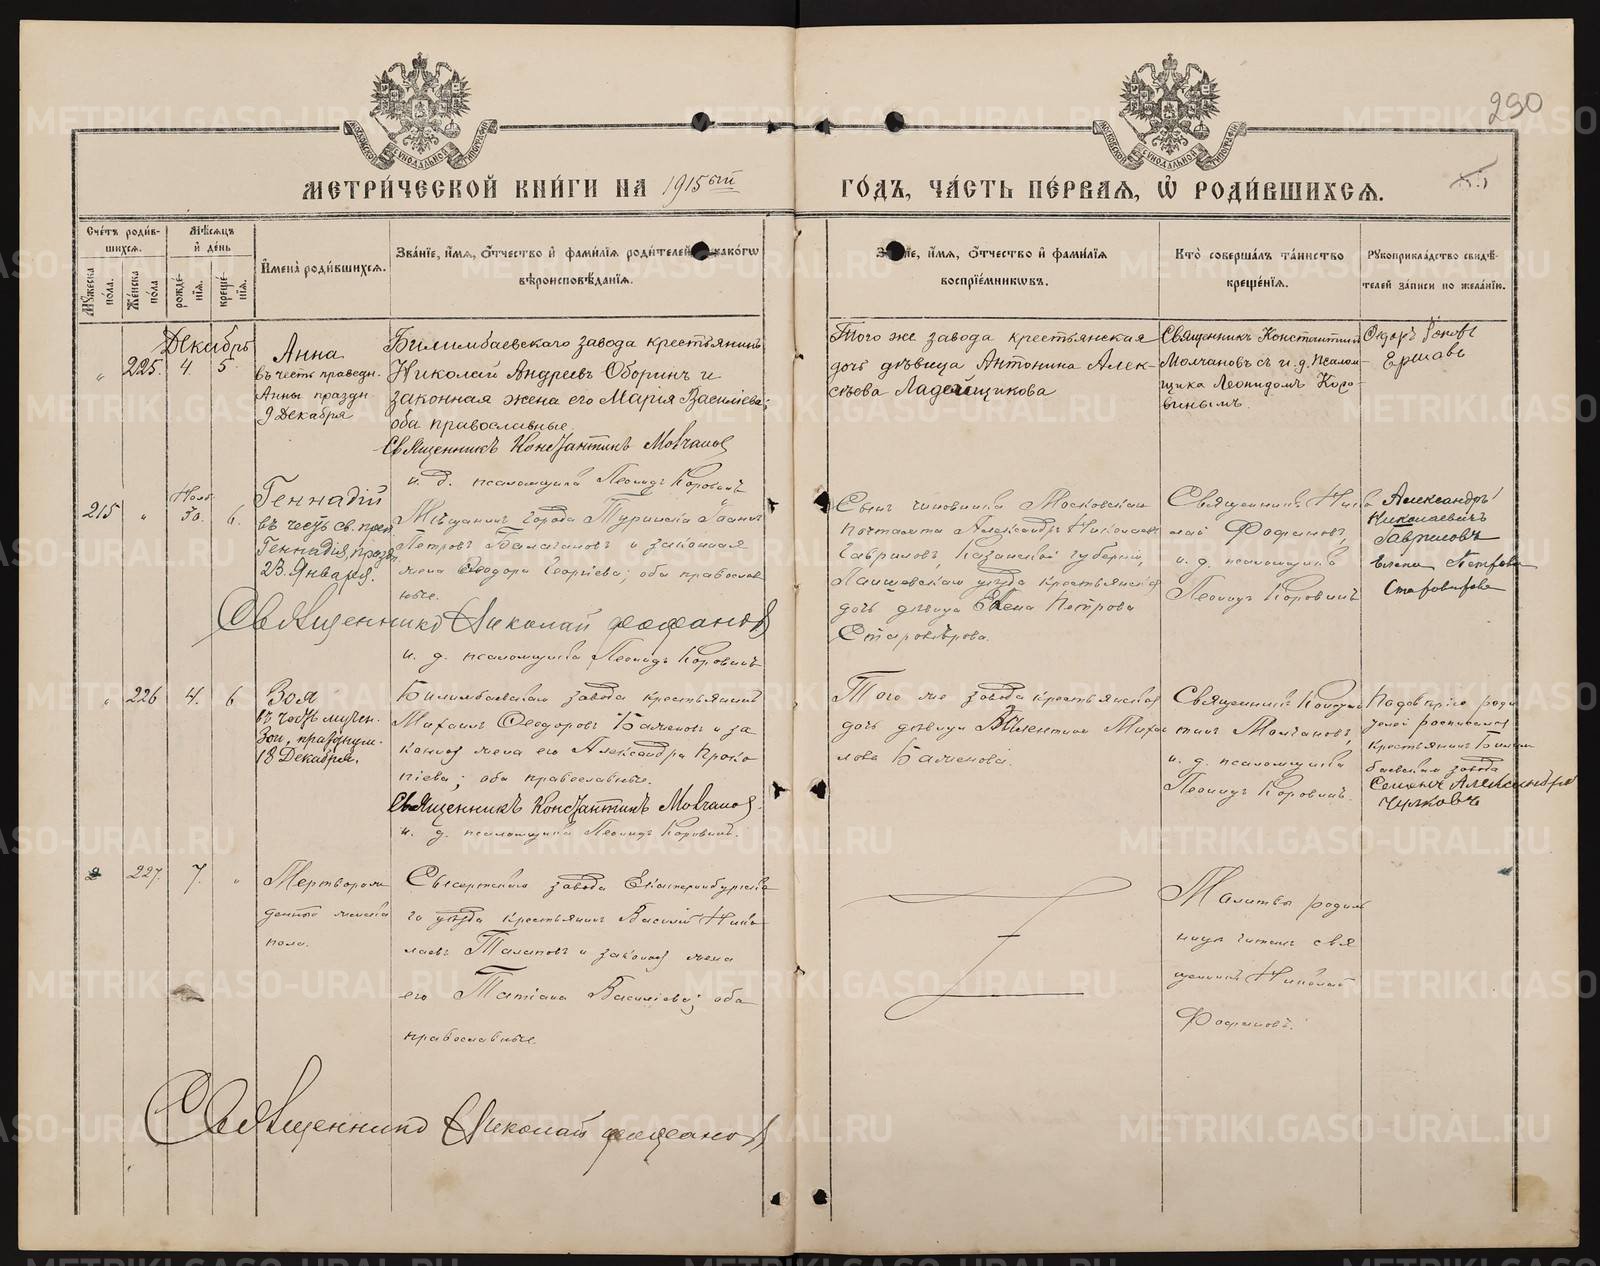 290
МЕТРИ́ЧЕСКОЙ КНИ́ГИ НА 1915 ый
ГО́ДЪ, ЧА́СТЬ ПЕ́РВАЯ, Ѡ РОДИ́ВШИХСЯ.
Сче́тъ роди́в-
шихся.
Мѣ́сяцъ
и де́нь
Му́жеска
по́ла.
Же́нска
пола
рожде́-
нїя.
креще́-
нїя.
Имена̀ роди́вшихся.
Зва́нїе, и́мя, о́тчество и фами́лїя роди́телей, како́гѡ
вѣроисповѣ́данїя.
и́мя, о́тчество и фами́лїя
воспрїе́мниковъ.
Кто̀ соверша́лъ та́инство
креще́нїя.
Рукоприкла́дство свидѣ́-
телей за́писи по жела́нїю.
Декабрь
„ 225. 4 5
Анна
въ честь праведн.
Анны праздн
9 Декабря
Билимбаевскаго завода крестьянинъ
Николай Андреевъ Оборинъ и
законная жена его Марія Василіева;
оба православные.
Священникъ Константинъ Молчановъ
и. д. псаломщика Леонидъ Коровинъ
Того же завода крестьянская
дочь дѣвица Антонина Алек-
сѣева Ладейщикова
Священникъ Константинъ
Молчановъ съ и. д. Псалом
щика Леонидомъ Коро-
винымъ.
215 „ Нояб 30. 6.
Геннадій
въ честь св. преп.
Геннадія, празд.
23. Января.
Мѣщанинъ города Туринска
Петровъ Балаганов и законная
жена Ѳеодора Георгіева; оба православ
ные.
Священникъ Николай Фофановъ
и. д. псаломщика Леонидъ Коровинъ
Сынъ чиновника Московскаго
Почтамта Александръ Николаевъ
Гавриловъ, Казанской губерніи,
Лаишевскаго уѣзда крестьянская
дочь дѣвица Елена Петрова
Староверова.
Священникъ Нико
лай Фофановъ,
и. д. псаломщика
Леонидъ Коровинъ
Александръ
Николаевичъ
Гавриловъ
Елена Петрова
Староверова
„ 226 4. 6
Зоя
въ честь мучен.
Зои, празднуем.
18 Декабря.
Билимбаевскаго завода крестьянинъ
Михаилъ Ѳеодоровъ Баженовъ и за
конная жена его Александра Проко
піева; оба православные.
Священникъ Константинъ Молчановъ.
и. д. псаломщика Леонидъ Коровинъ.
Того же завода крестьянская
дочь дѣвица Валентина Михаи
лова Баженова.
Священникъ Констан
тинъ Молчановъ,
и. д. псаломщика
Леонидъ Коровинъ.
крестьянинъ Билим
баевскаго завода
Семенъ Александров
Чижовъ
227. 7. „
Мертворож
денный женска
пола.
Сысертскаго завода Екатеринбургска
го уѣзда крестьянинъ Василій Нико
лаевъ Талановъ и законная жена
его Татіана Василіева; оба
православные.
Молитвы родиль
ницѣ читалъ свя
щенникъ Николай
Фофановъ.
Священникъ Николай Фофановъ
METRIKI.GASO-URAL.RU